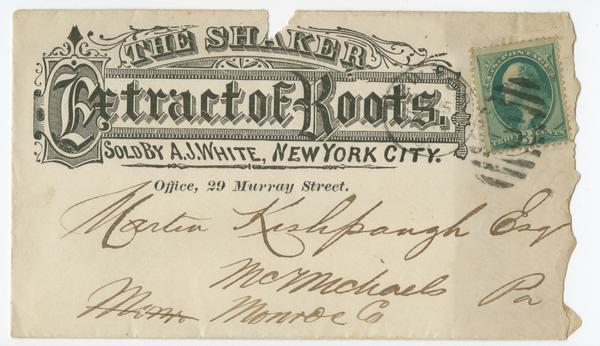 THE SHAKER
Extract of Roots.
SOLD BY A.J. WHITE, NEW YORK CITY.
Office, 29 Murray Street.
Martin Kishpaugh Esq
McMichaels Pa
Monroe Co